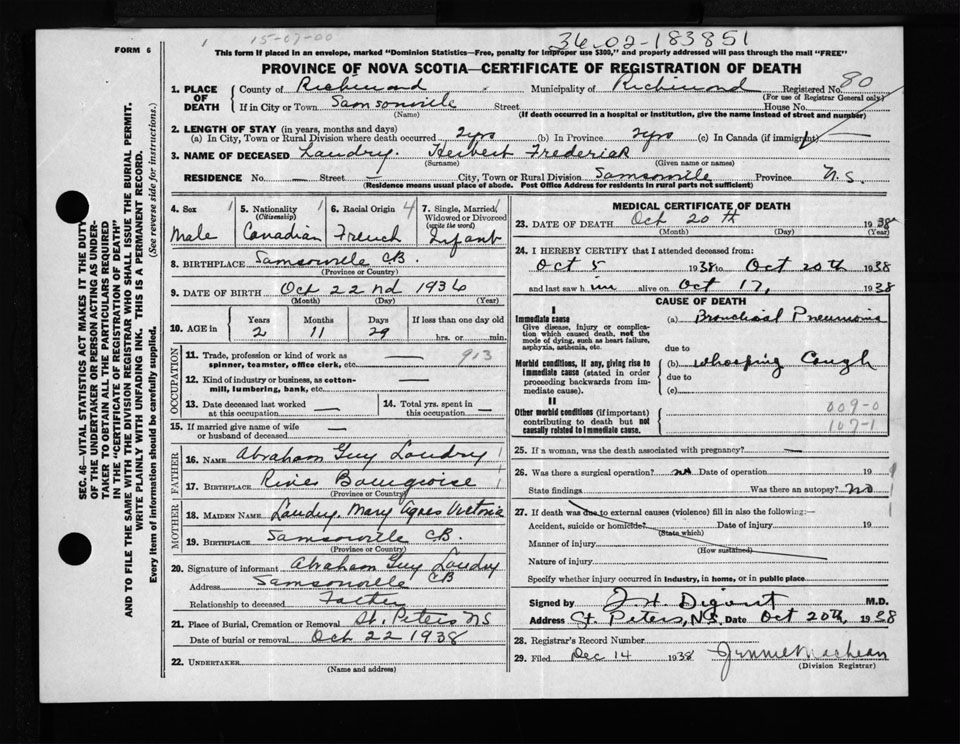 15-07-00
36-02-183851
FORM 6
This form if placed in an envelope, marked "Dominion Statistics—Free, penalty for improper use $300," and properly addressed will pass through the mail "FREE"
PROVINCE OF NOVA SCOTIA—CERTIFICATE OF REGISTRATION OF DEATH
SEC. 46—VITAL STATISTICS ACT MAKES IT THE DUTY
OF THE UNDERTAKER OR PERSON ACTING AS UNDER-
TAKER TO OBTAIN ALL THE PARTICULARS REQUIRED
IN THE "CERTIFICATE OF REGISTRATION OF DEATH"
AND TO FILE THE SAME WITH THE DIVISION REGISTRAR WHO SHALL ISSUE THE BURIAL PERMIT.
WRITE PLAINLY WITH UNFADING INK. THIS IS A PERMANENT RECORD.
Every item of information should be carefully supplied. (See reverse side for instructions.)
1. PLACE OF DEATH County of Richmond Municipality of Richmond Registered No. 80
(For use of Registrar General only)
If in City or Town Samsonville Street House No.
(Name) (If death occurred in a hospital or institution, give the name instead of street and number)
2. LENGTH OF STAY (in years, months and days)
(a) In City, Town or Rural Division where death occurred 2yrs (b) In Province 2yrs (c) In Canada (if immigrant)
3. NAME OF DECEASED Landry, Herbert Frederick
(Surname) (Given name or names)
RESIDENCE No. — Street — City, Town or Rural Division Samsonville Province N.S.
(Residence means usual place of abode. Post Office Address for residents in rural parts not sufficient)
4. Sex 1 5. Nationality 1 6. Racial Origin 4 7. Single, Married, 1
(Citizenship) Widowed or Divorced
(write the word)
Male Canadian French Infant
8. BIRTHPLACE Samsonville CB.
(Province or Country)
9. DATE OF BIRTH Oct 22nd 1936
(Month) (Day) (Year)
10. AGE in Years Months Days If less than one day old
2 11 29 hrs. or min.
OCCUPATION
11. Trade, profession or kind of work as — 913
spinner, teamster, office clerk, etc.
12. Kind of industry or business, as cotton- —
mill, lumbering, bank, etc.
13. Date deceased last worked — 14. Total yrs. spent in
at this occupation this occupation —
15. If married give name of wife —
or husband of deceased
FATHER
16. NAME Abraham Guy Landry 1
17. BIRTHPLACE River Bourgeoise 1
(Province or Country)
MOTHER
18. MAIDEN NAME Landry, Mary Agnes Victoria
19. BIRTHPLACE Samsonville CB.
(Province or Country)
20. Signature of informant Abraham Guy Landry
Address Samsonville CB
Relationship to deceased Father
21. Place of Burial, Cremation or Removal St. Peters NS
Date of burial or removal Oct 22 1938
22. UNDERTAKER
(Name and address)
MEDICAL CERTIFICATE OF DEATH
23. DATE OF DEATH Oct 20th 1938
(Month) (Day) (Year)
24. I HEREBY CERTIFY that I attended deceased from:
Oct 5 1938 to Oct 20th 1938
and last saw him alive on Oct 17, 1938
CAUSE OF DEATH
I
Immediate cause (a) Bronchial Pneumonia
Give disease, injury or complica-
tion which caused death, not the
mode of dying, such as heart failure,
asphyxia, asthenia, etc. due to
Morbid conditions, if any, giving rise to (b) Whooping Cough
immediate cause (stated in order due to
proceeding backwards from im-
mediate cause). (c)
II
Other morbid conditions (if important) 009-0
contributing to death but not 107-1
causally related to immediate cause.
25. If a woman, was the death associated with pregnancy? —
26. Was there a surgical operation? no Date of operation 19
State findings Was there an autopsy? no 1
27. If death was due to external causes (violence) fill in also the following:—
Accident, suicide or homicide? Date of injury 19
(State which)
Manner of injury
(How sustained)
Nature of injury
Specify whether injury occurred in industry, in home, or in public place
Signed by M.D.
Address St. Peters, N.S. Date Oct 20th, 1938
28. Registrar's Record Number
29. Filed Dec 14 1938
(Division Registrar)